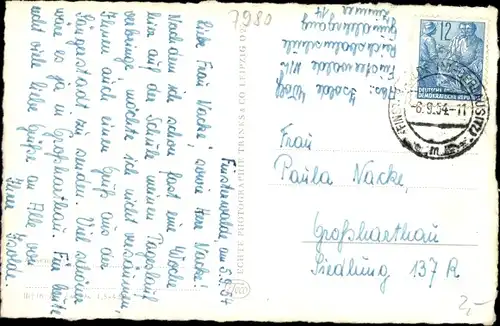 7980
Finsterwalde, am 5.9.54
Liebe Frau Nacke, sowie Herr Nacke!
Nachdem ich schon fast eine Woche
hier auf der Schule meinen Tageslauf
verbringe, möchte ich nicht versäumen,
Ihnen auch einen Gruß aus der
Sängerstadt zu senden. Viel schöner
wäre es ja in Großharthau. Für heute
recht viele liebe Grüße an Alle von
Ihrer Isolde.
Abs. Isolde Wolf
Finsterwalde N/L
Reichsbahnschule
Grundlehrgang
Zimmer 14
ECHTE PHOTOGRAPHIE TRINKS & CO. LEIPZIG
12
DEUTSCHE
DEMOKRATISCHE REPUBLIK
FINSTERWALDE (NIEDERLAUSITZ)
-6.9.54-11
m
Frau
Paula Nacke,
Großharthau
Siedlung 137 R
2,-